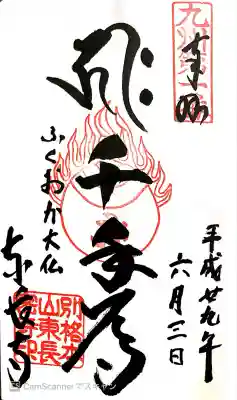 九州第一
奉拝
千手尊
ふくおか大仏
東長寺
別格本
山東長
平成廿九年
六月三日
CS CamScanner でスキャン